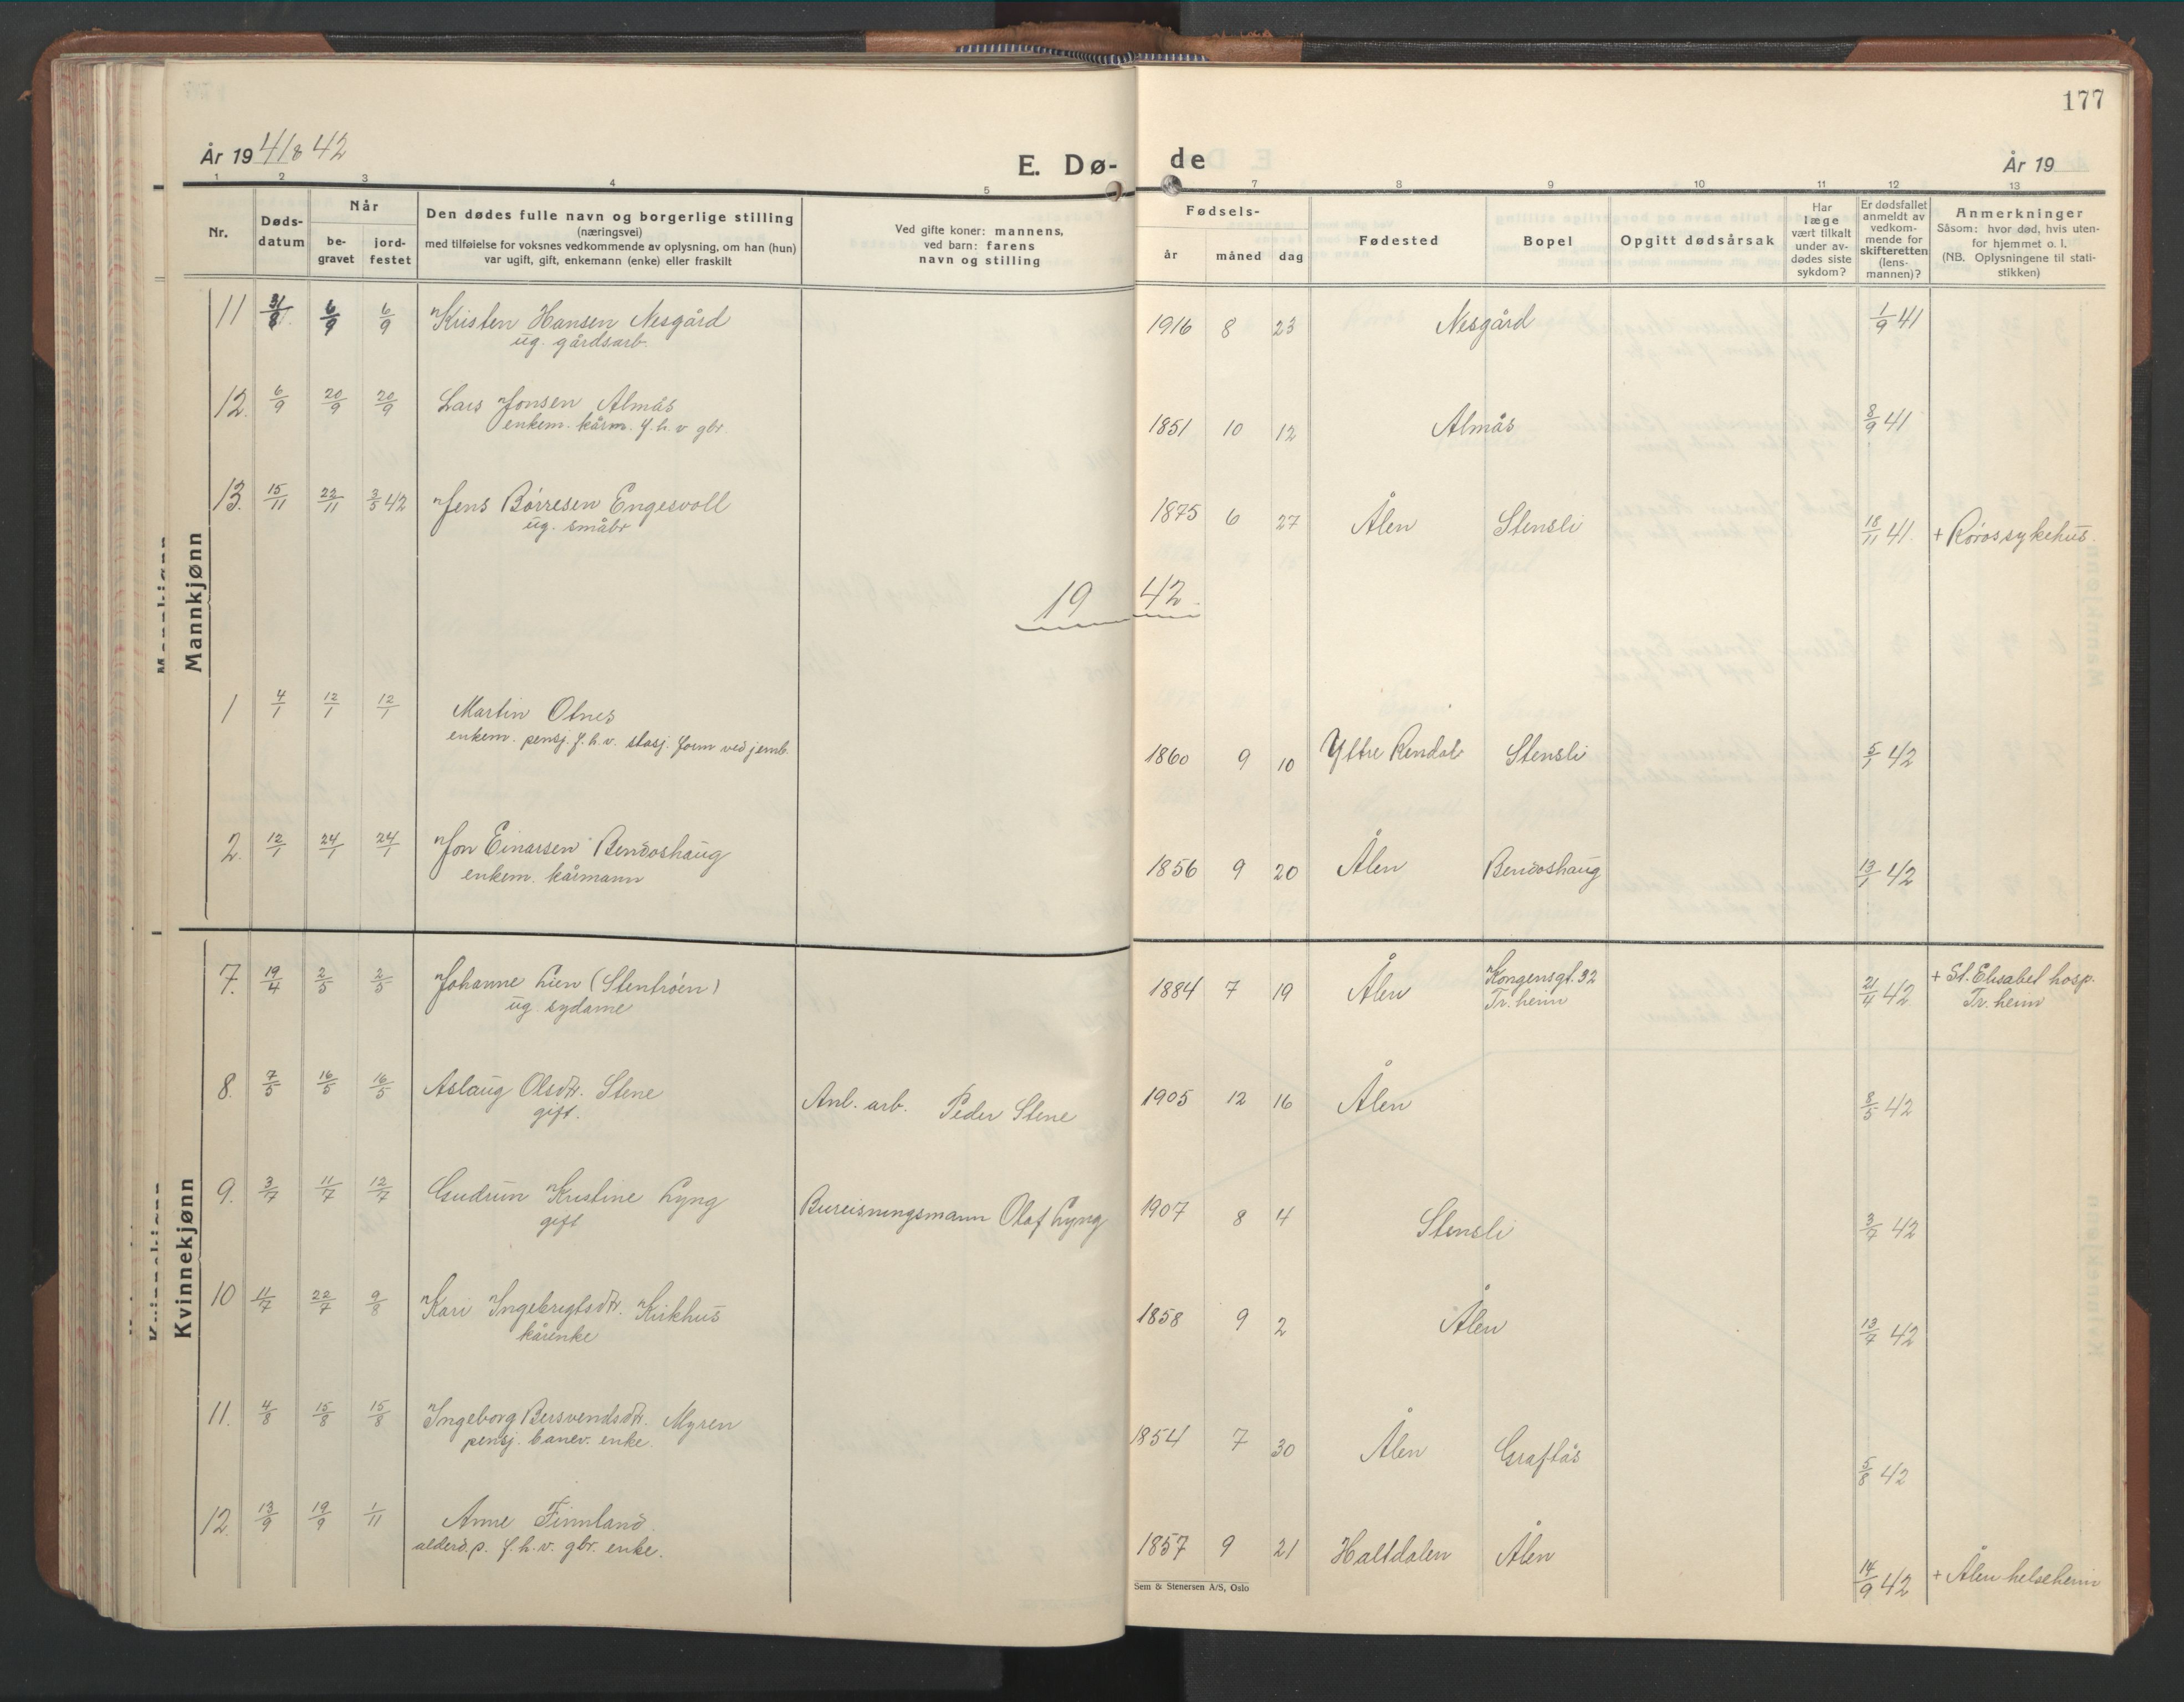 177
År 19 41 & 42
E. Dø- de
År 19
1 2 3 4 5 7 8 9 10 11 12 13
Nr.
Døds-
datum
Når
be-
gravet
jord-
festet
Den dødes fulle navn og borgerlige stilling
(næringsvei)
med tilføielse for voksnes vedkommende av oplysning, om han (hun)
var ugift, gift, enkemann (enke) eller fraskilt
Ved gifte koner: mannens,
ved barn: farens
navn og stilling
Fødsels-
år måned dag
Fødested
Bopel
Opgitt dødsårsak
Har
læge
vært tilkalt
under av-
dødes siste
sykdom?
Er dødsfallet
anmeldt av
vedkom-
mende for
skifteretten
(lens-
mannen)?
Anmerkninger
Såsom: hvor død, hvis uten-
for hjemmet o. l.
(NB. Oplysningene til stati-
stikken)
Mannkjønn
11 31/8 6/9 6/9 Kristen Hansen Nesgård 1916 8 23 Nesgård 1/9 41
ug. gårdsarb.
12. 6/9 20/9 20/9 Lars Jonsen Almås 1851 10 12 Almås 8/9 41
enkem. kårm. f.h.v gbr.
13. 15/11 22/11 3/5 42 Jens Børresen Engesvoll 1875 6 27 Ålen Stensli 18/11 41. + Røros sykehus.
ug. småbr
19 42
1 4/1 12/1 12/1 Martin Otnes 1860 9 10 Yttre Rendal Stensli 5/1 42
enkem. pensj. f.h.v. stasj. form ved jernb.
2. 12/1 24/1 24/1 Jon Einarsen Bendoshaug 1856 9 20 Ålen Bendoshaug 13/1 42
enkem. kårmann
Kvinnekjønn
7. 19/4 2/5 2/5 Johanne Lien (Stentrøen) 1884 7 19 Ålen Kongensgt. 32 21/4 42 + St. Elisabet hosp.
ug. sydame Tr. heim Tr. heim
8. 7/5 16/5 16/5 Aslaug Olsdtr. Stene Anl. arb. Peder Stene 1905 12 16 Ålen 8/5 42
gift.
9. 3/7 11/7 12/7 Gudrun Kristine Lyng Bureisningsmann Olaf Lyng 1907 8 4 Stensli 3/7 42
gift
10 11/7 22/7 9/8 Kari Ingebrigtsdtr. Kirkhus 1858 9 2 Ålen 13/7 42
kårenke
11. 4/8 15/8 15/8 Ingeborg Bersvendsdtr. Myren 1854 7 30 Ålen Graftås 5/8 42
pensj. banev. enke.
12. 13/9 19/9 1/11 Anne Finnland. 1857 9 21 Haltdalen Ålen 14/9 42 + Ålen helseheim
alderd. p. f.h.v. gbr. enke.
Sem & Stenersen A/S, Oslo